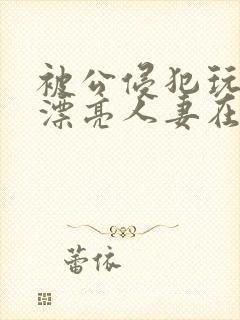 被公侵犯玩
漂亮人妻在
蕾依